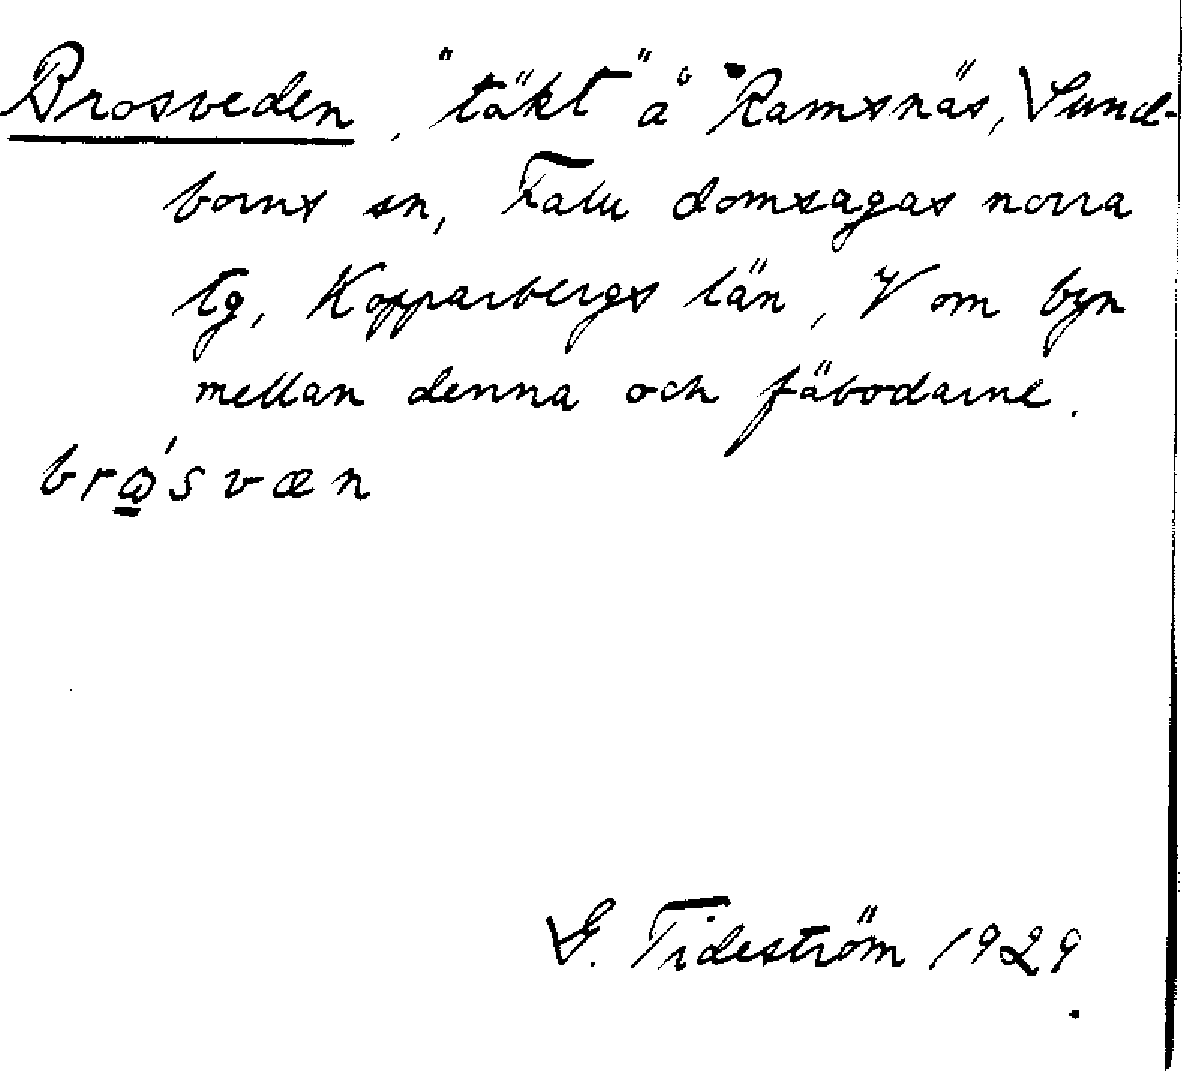 Brosveden, "täkt" å Ramsnäs, Sund-
borns sn, Falu domsagas norra
tg, Kopparbergs län, V om byn
mellan denna och fäbodarne.
brώ̲svæn
G. Tideström 1929